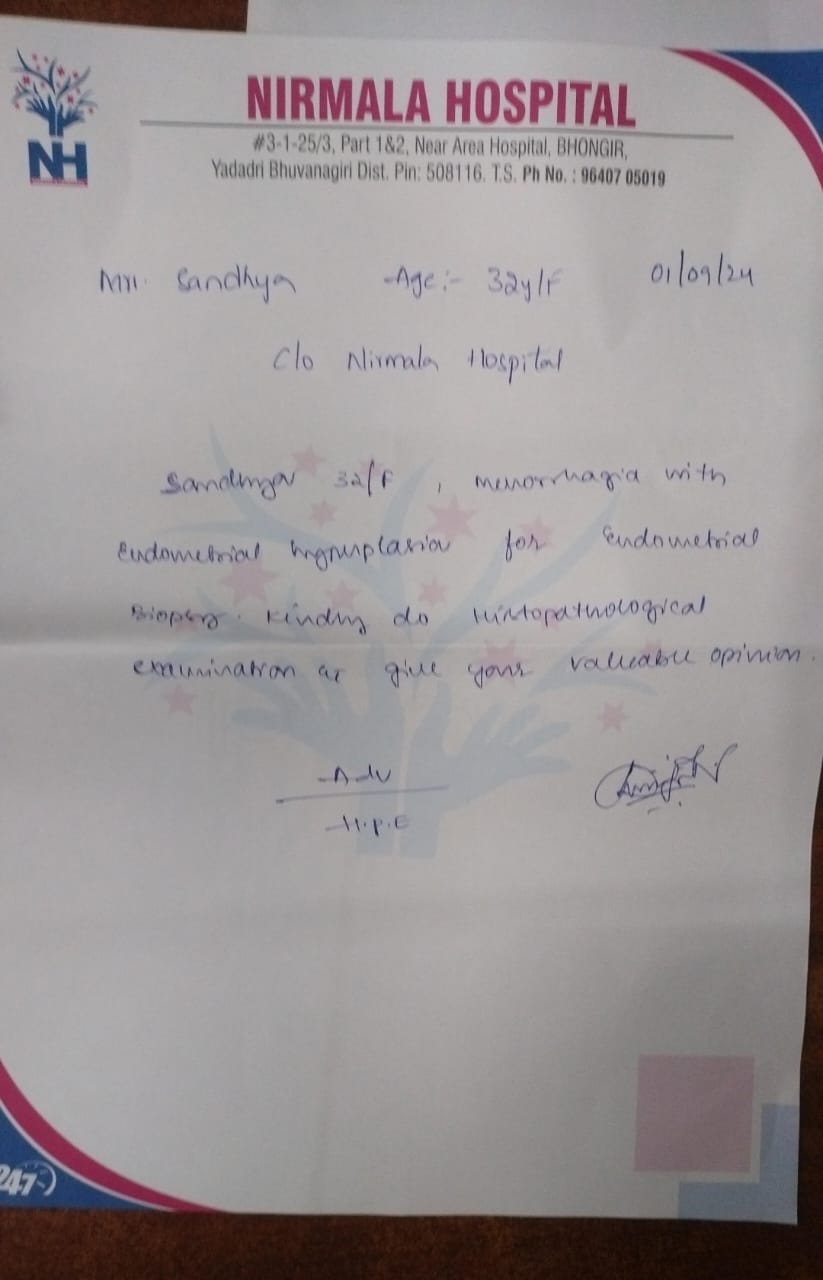 NIRMALA HOSPITAL
#3-1-25/3, Part 1&2, Near Area Hospital, BHONGIR,
Yadadri Bhuvanagiri Dist. Pin: 508116. T.S. Ph No. : 96407 05019
NH
Mrs. Sandhya Age:- 32y/F 01/09/24
C/o Nirmala Hospital
Sandhya 32/F , menorrhagia with
Endometrial hyperplasia for Endometrial
Biopsy. Kindly do Histopathological
examination & give your valuable opinion.
Adv
H.P.E
247